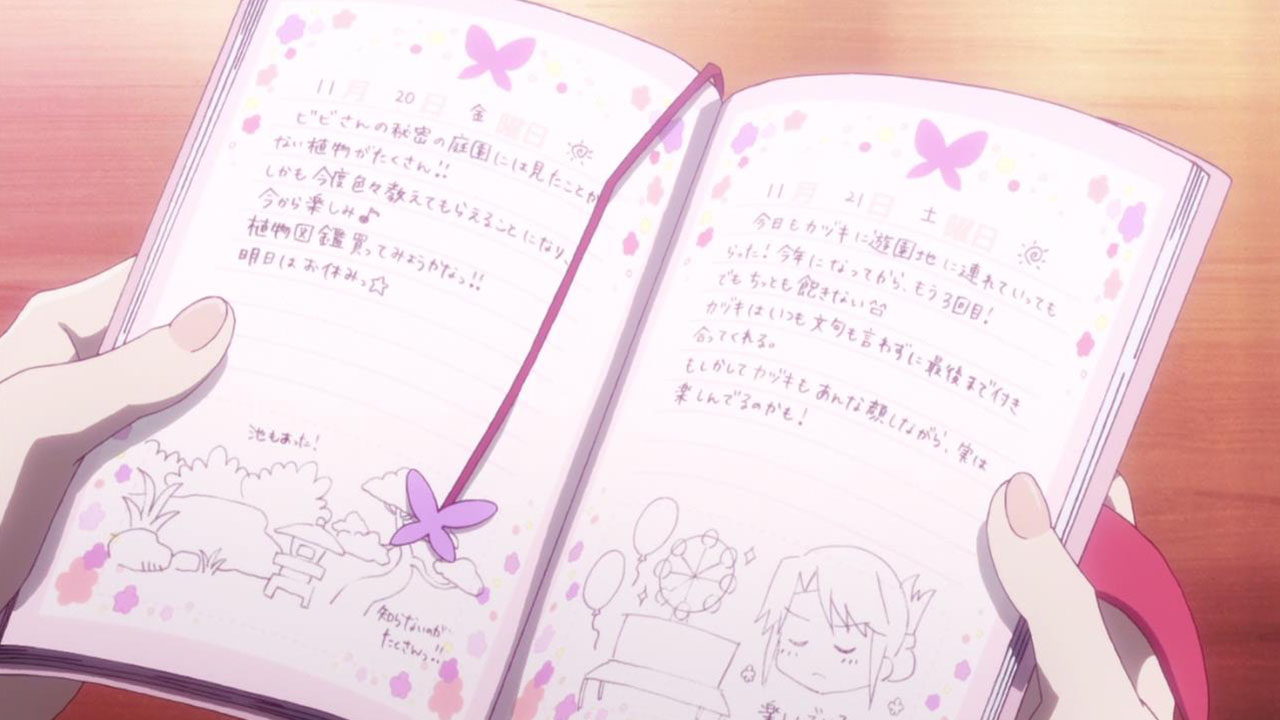 11月 20日 金曜日
ビビさんの秘密の庭園には見たことが
ない植物がたくさん!!
しかも今度色々教えてもらえることになり、
今から楽しみ♪
植物図鑑買ってみようかなっ!!
明日はお休みっ☆
池もあった!
知らないのが
たくさんっ!!
11月 21日 土曜日
今日もカヅキに遊園地に連れていっても
らった!今年になってから、もう3回目!
でもちっとも飽きない
カヅキはいつも文句も言わずに最後まで付き
合ってくれる。
もしかしてカヅキもあんな顔しながら、実は
楽しんでるのかも!
楽しんでいる